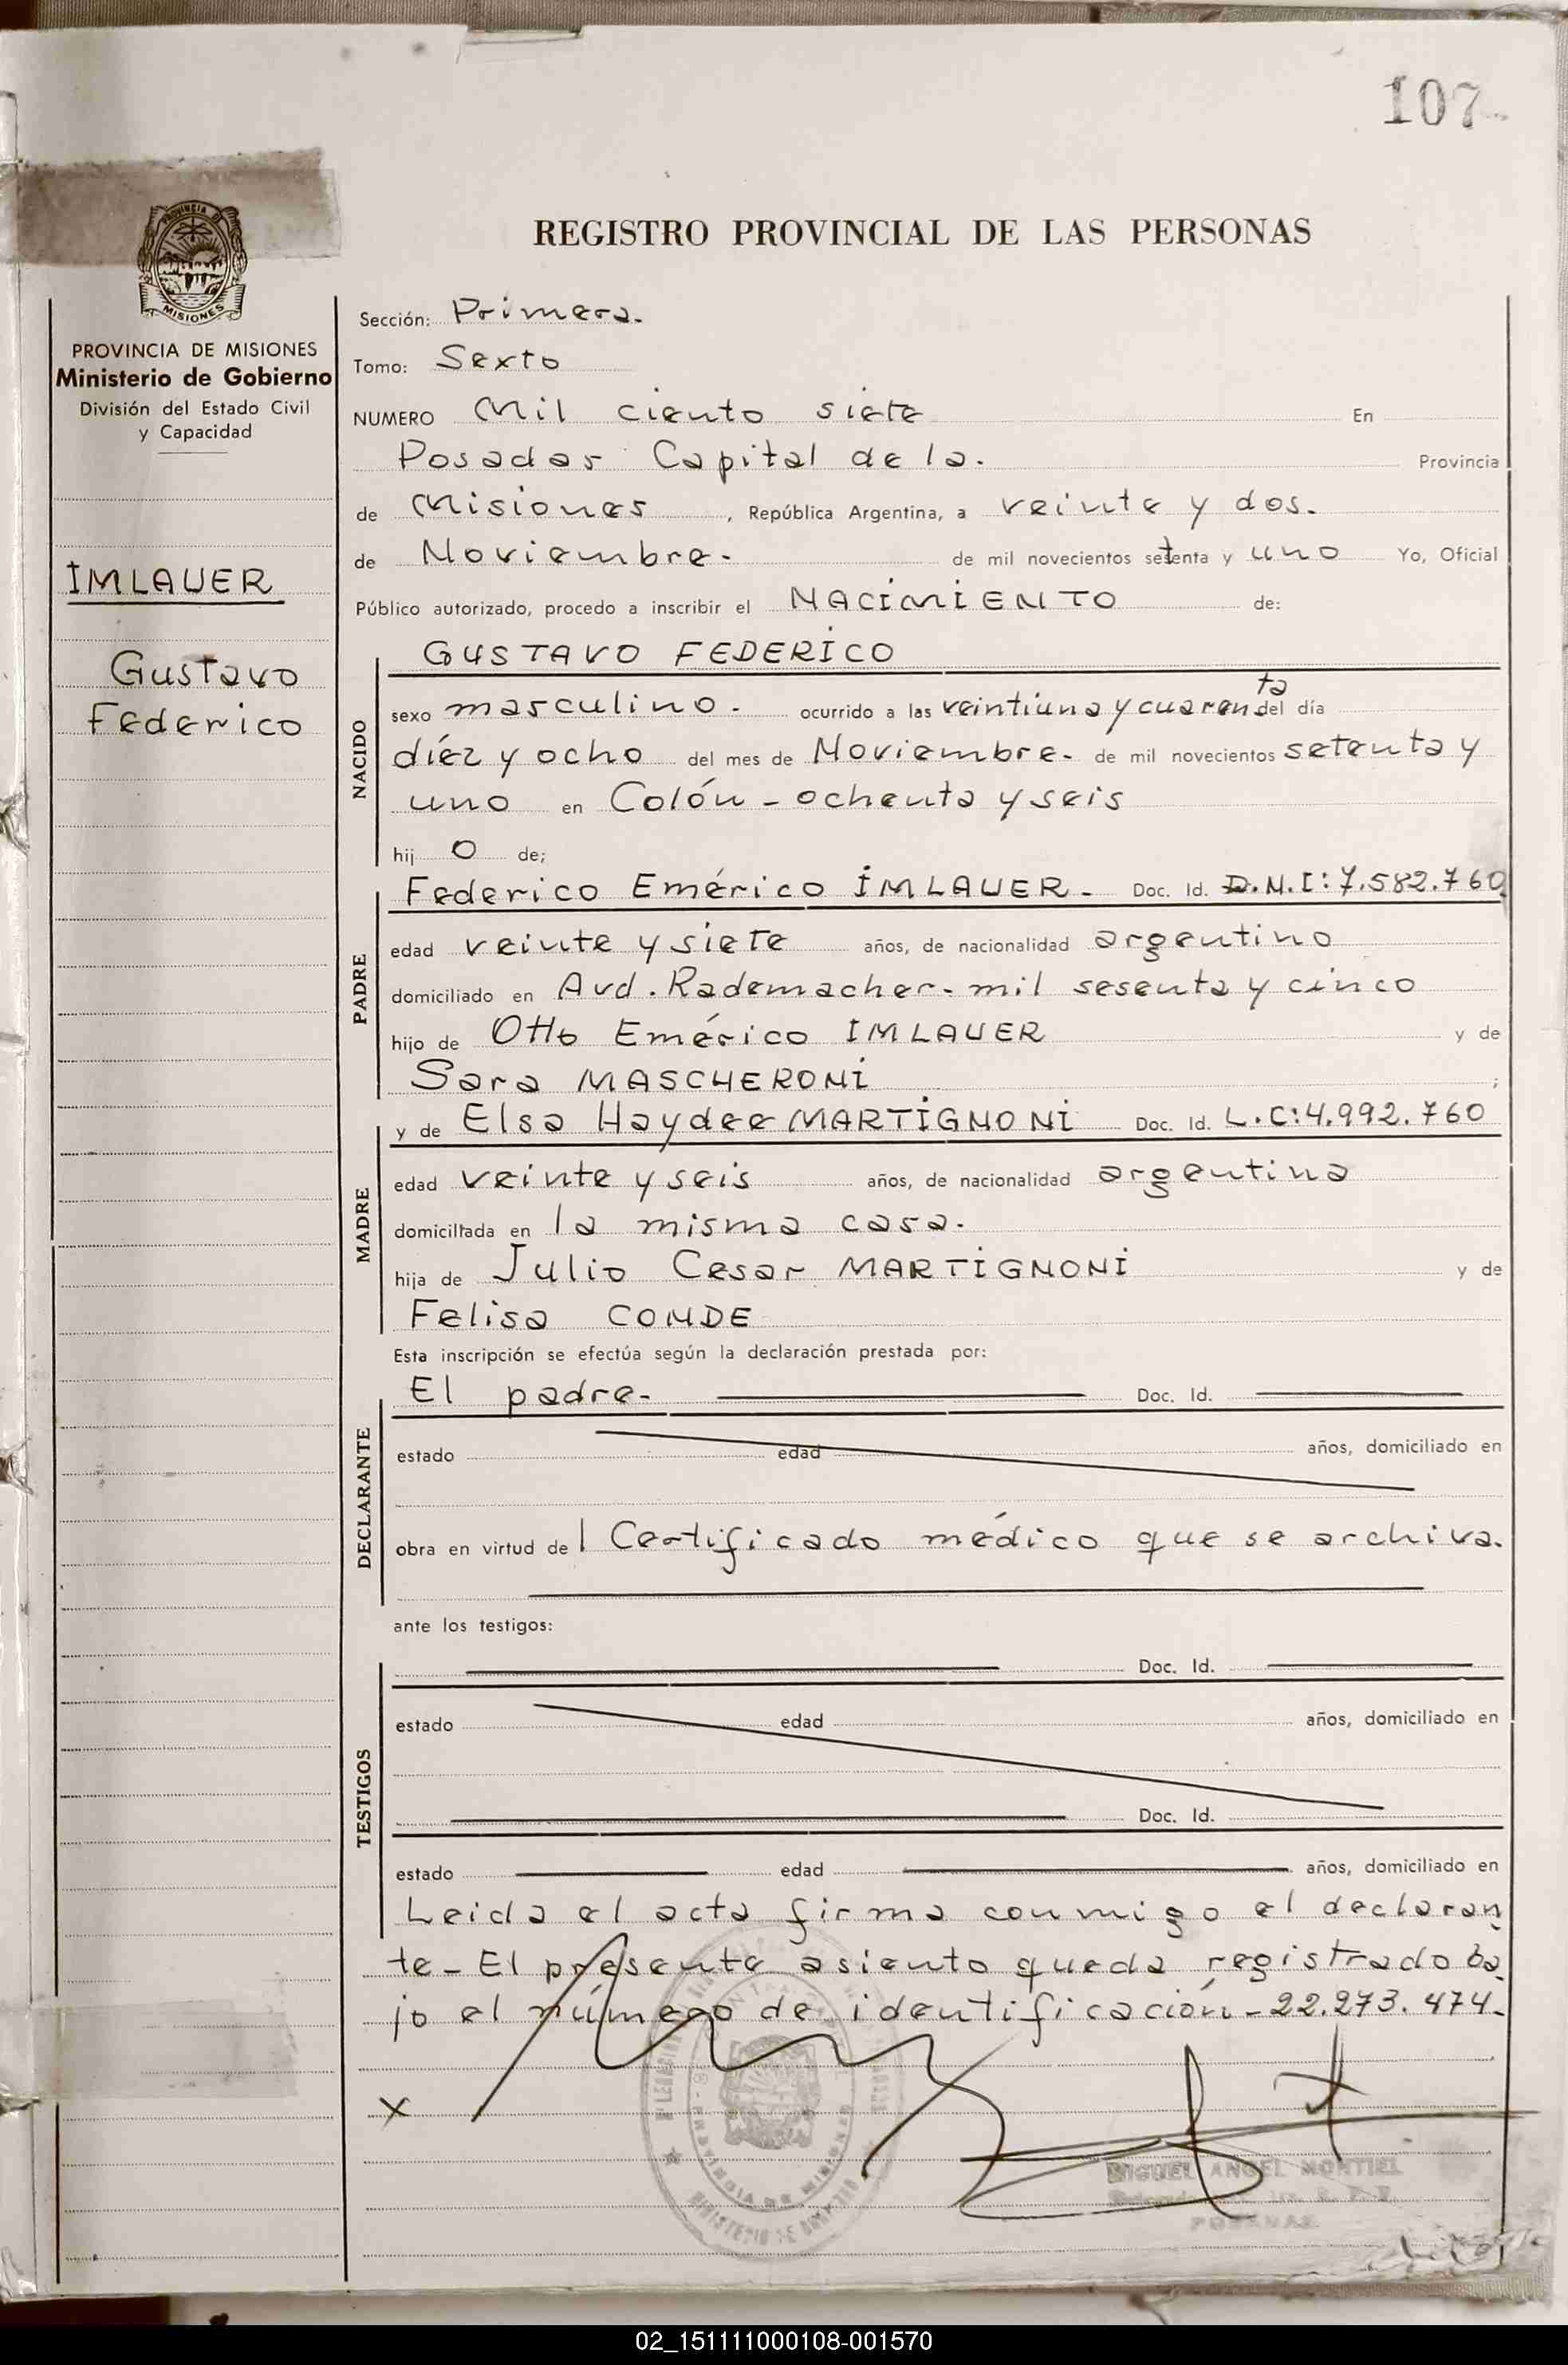 107
REGISTRO PROVINCIAL DE LAS PERSONAS
PROVINCIA DE MISIONES
Ministerio de Gobierno
División del Estado Civil
y Capacidad
IMLAUER
Gustavo
Federico
Sección: Primera.
Tomo: Sexto
NUMERO Mil ciento siete En
Posadas Capital de la. Provincia
de Misiones, República Argentina, a veinte y dos.
de Noviembre- de mil novecientos setenta y uno Yo, Oficial
Público autorizado, procedo a inscribir el NACIMIENTO de:
NACIDO
GUSTAVO FEDERICO
sexo masculino- ocurrido a las veintiuna y cuarenta del día
díez y ocho del mes de Noviembre- de mil novecientos setenta y
uno en Colón - ochenta y seis
hij o de;
PADRE
Federico Emérico IMLAUER- Doc. Id. D.N.I: 7.582.760
edad veinte y siete años, de nacionalidad argentino
domiciliado en Avd. Rademacher- mil sesenta y cinco
hijo de Otto Emérico IMLAUER y de
Sara MASCHERONI ;
MADRE
y de Elsa Haydee MARTIGNONI Doc. Id. L.C:4.992.760
edad veinte y seis años, de nacionalidad argentina
domiciliada en la misma casa.
hija de Julio Cesar MARTIGNONI y de
Felisa CONDE
Esta inscripción se efectúa según la declaración prestada por:
DECLARANTE
El padre- Doc. Id.
estado edad años, domiciliado en
obra en virtud de l Certificado médico que se archiva.
ante los testigos:
TESTIGOS
Doc. Id.
estado edad años, domiciliado en
Doc. Id.
estado edad años, domiciliado en
Leida el acta firma conmigo el declaran
te- El presente asiento queda registrado ba
jo el número de identificación - 22.273.474-
X
MIGUEL ANGEL MONTIEL
POSADAS
02_151111000108-001570